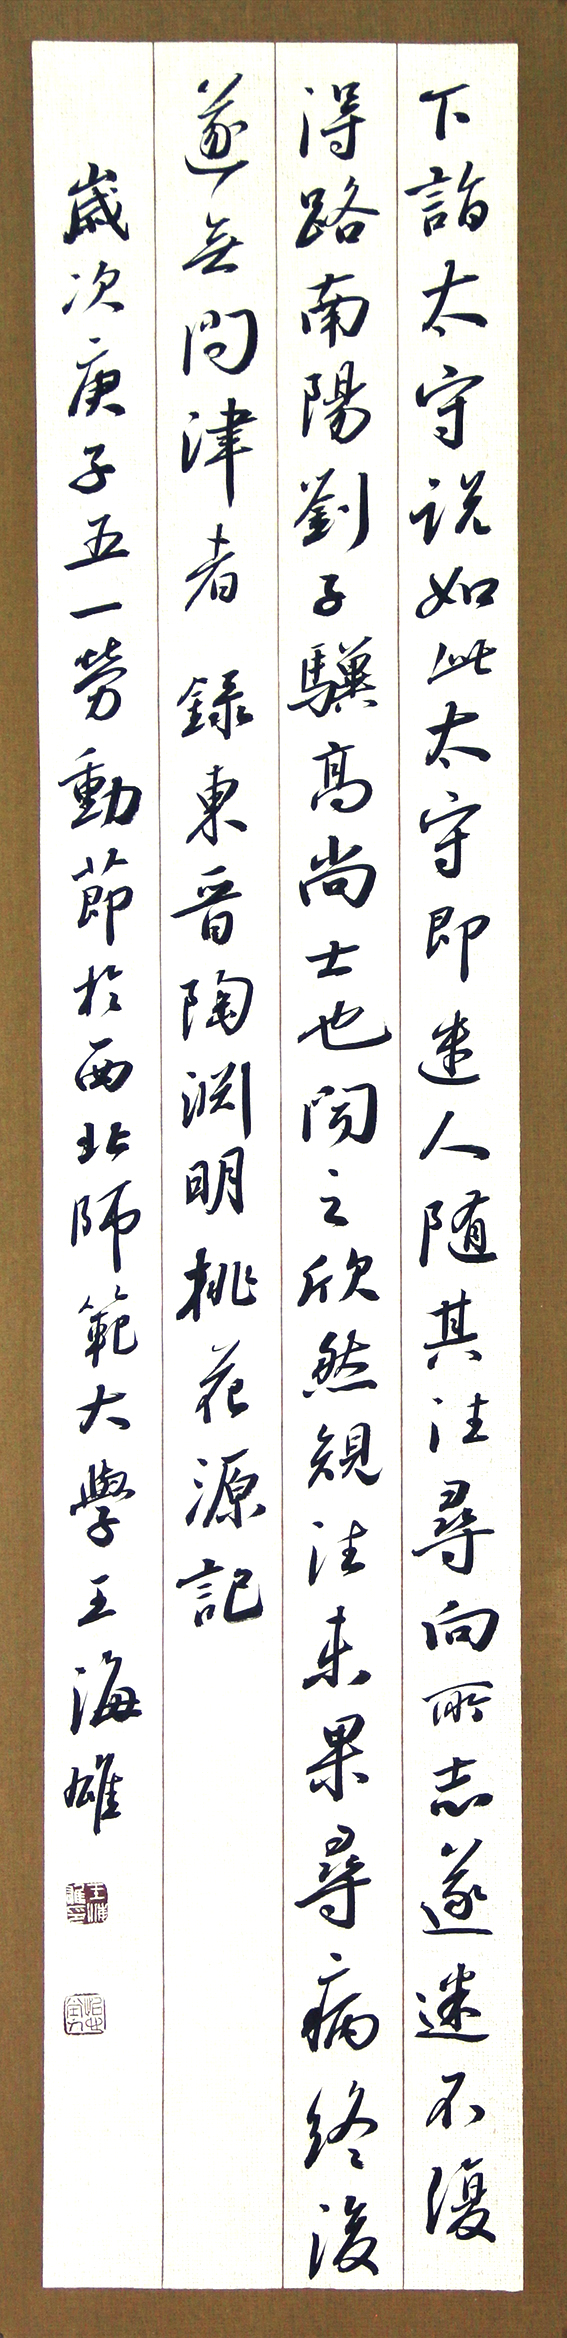 下詣太守説如此太守即遣人随其往尋向所志遂迷不復
得路南陽劉子驥高尚士也聞之欣然規往未果尋病終後
遂無問津者 録東晋陶淵明桃花源記
歲次庚子五一勞動節於西北師範大學王海雄